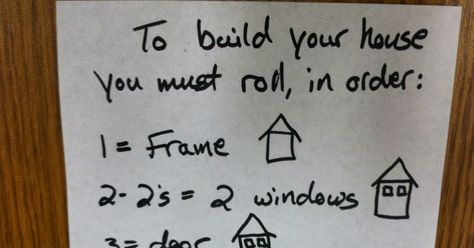 To build your house
you must roll, in order:
1 = Frame
2-2's = 2 windows
3 = door